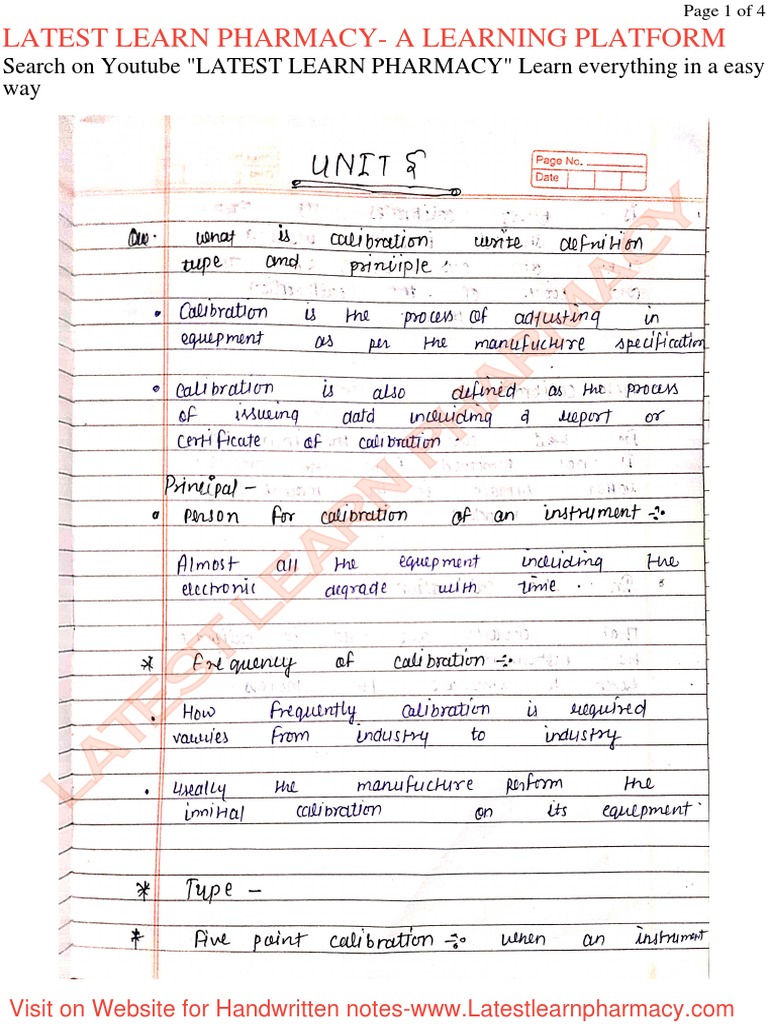 Page 1 of 4
LATEST LEARN PHARMACY- A LEARNING PLATFORM
Search on Youtube "LATEST LEARN PHARMACY" Learn everything in a easy
way
UNIT 5
Page No.
Date
Que. what is calibration, write defnition
type and principle
• Calibration is the process of adjusting in
equepment as per the manufucture specification
• calibration is also defined as the process
of issueing data including a report or
certificate of calibration.
Principal -
• Person for calibration of an instrument -:
Almost all the equepment including the
electronic degrade with time.
* Frequency of calibration -:
• How frequently calibration is required
vauries from industry to industry
• Useally the manufucture perform the
innitial calibration on its equepment.
* Type -
* Five point calibration -: when an instrument
LATEST LEARN PHARMACY
Visit on Website for Handwritten notes-www.Latestlearnpharmacy.com